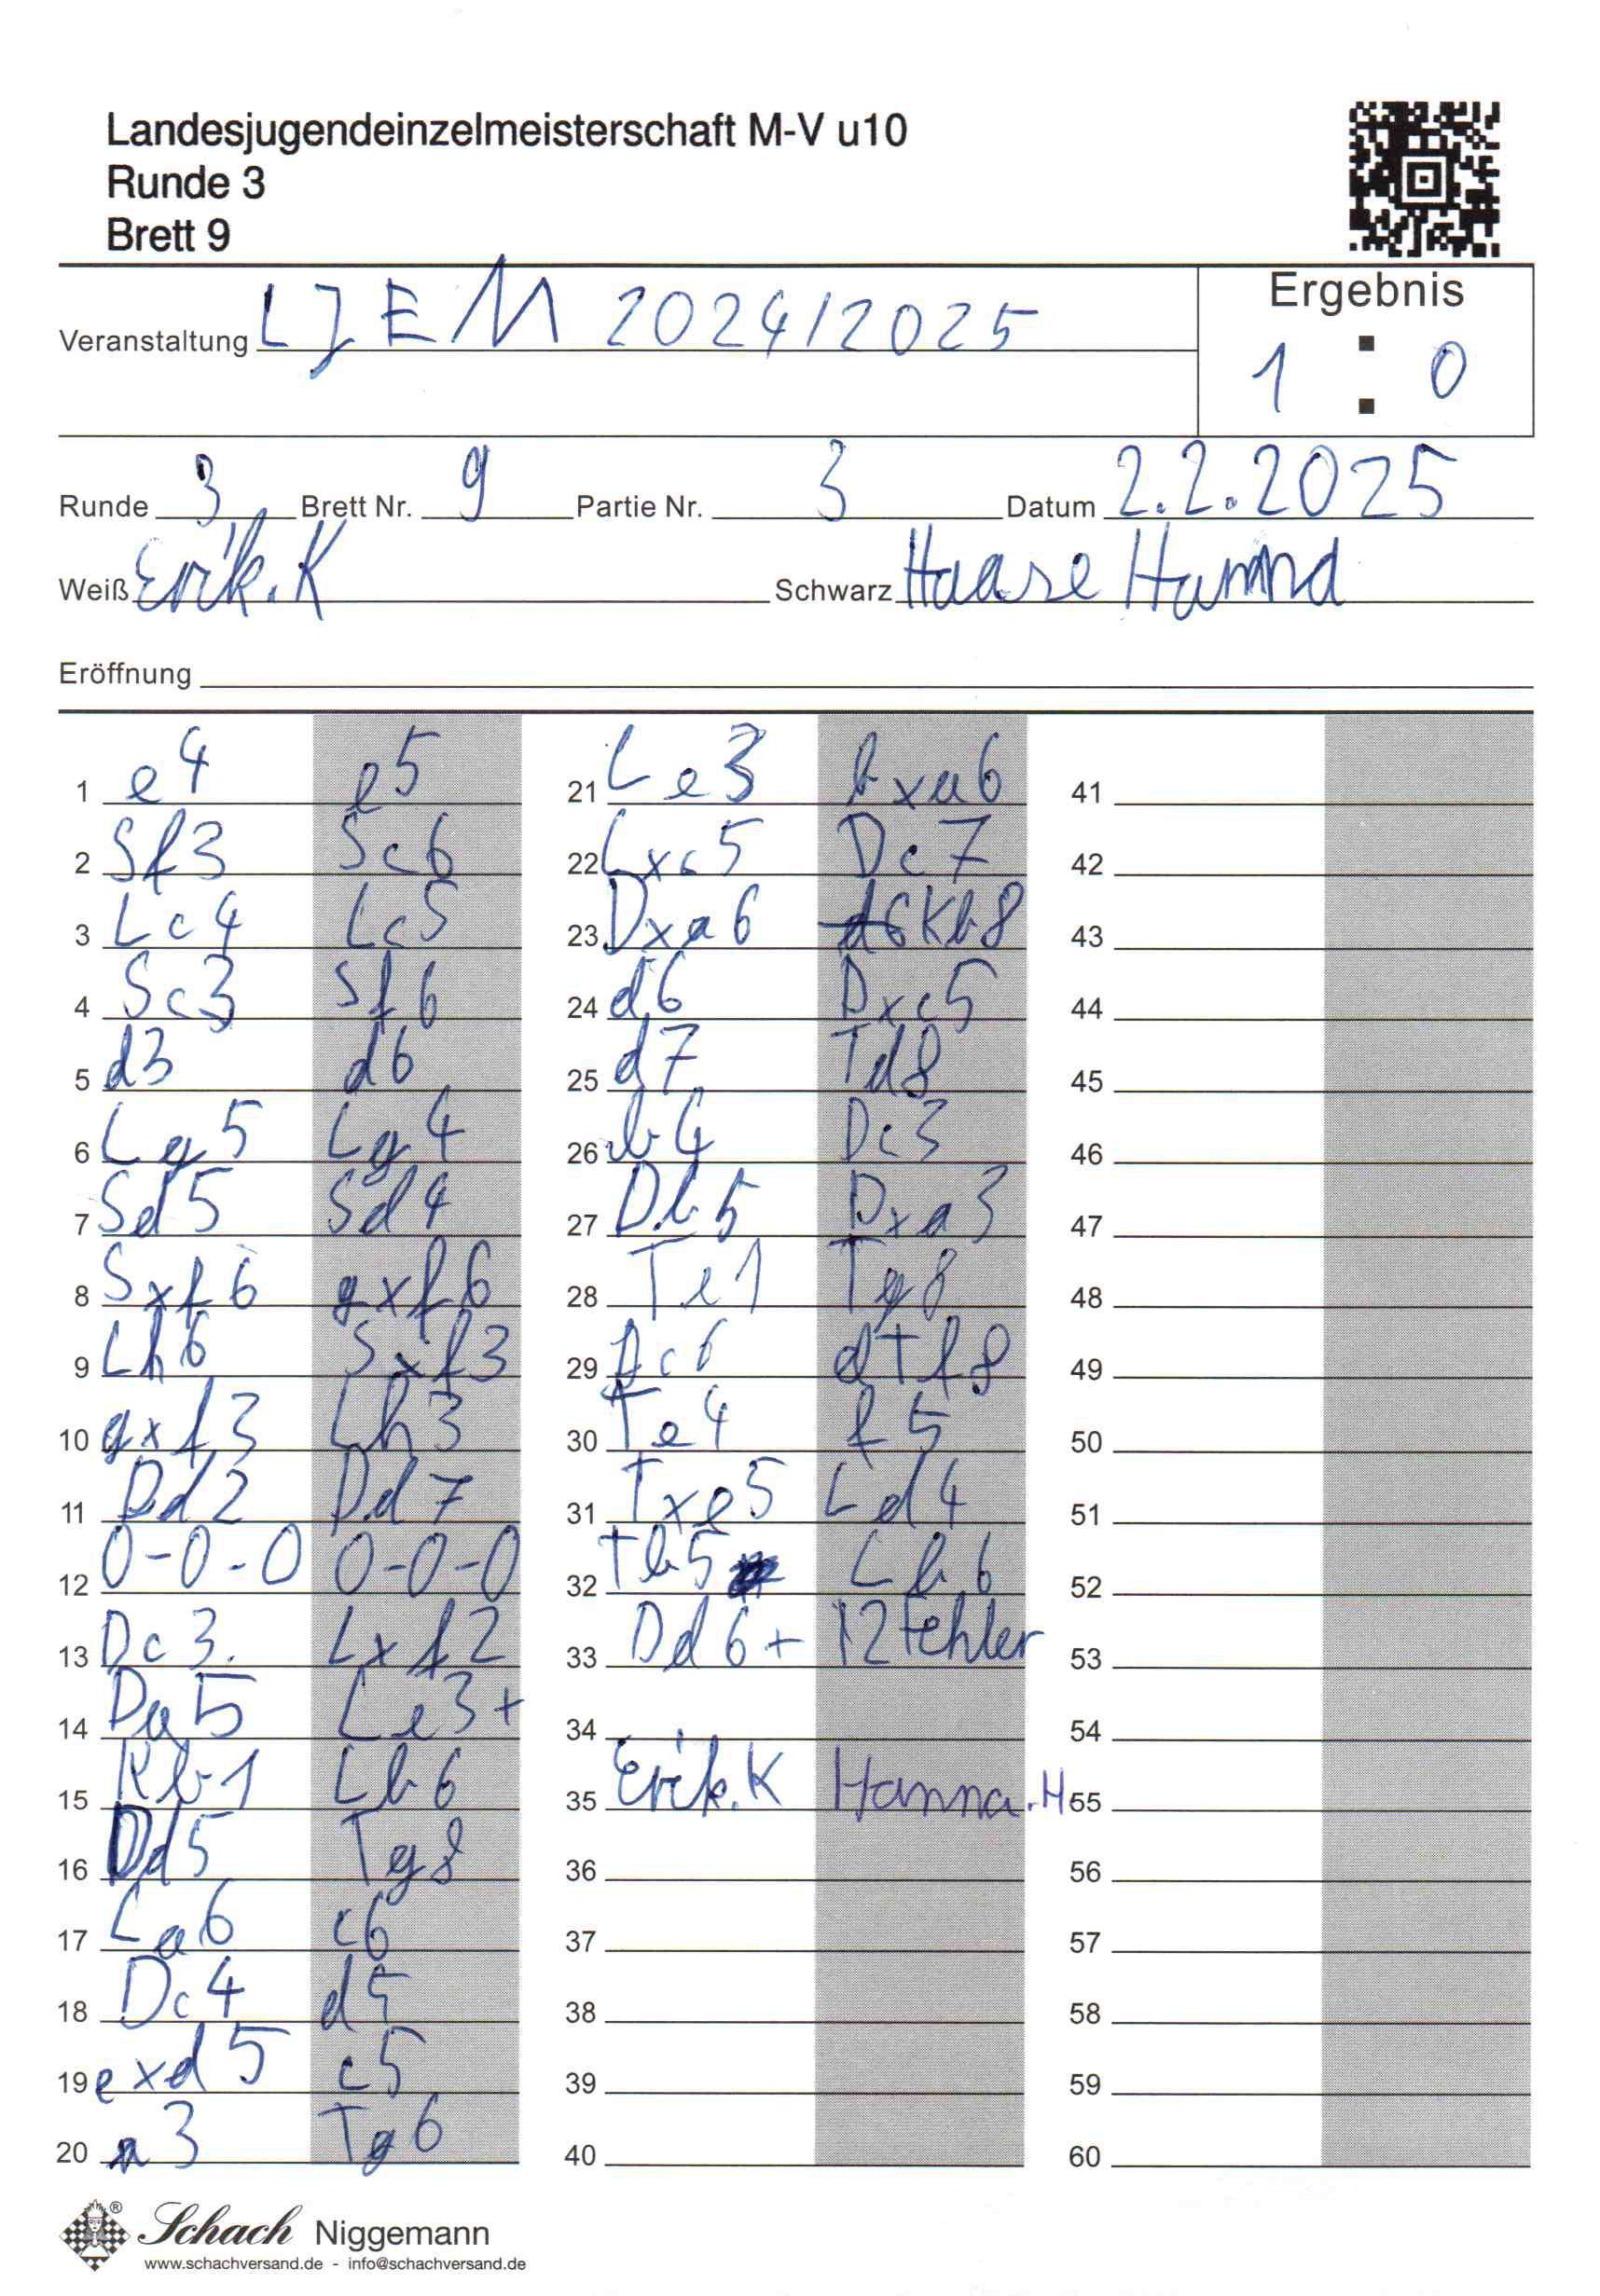 Landesjugendeinzelmeisterschaft M-V u10
Runde 3
Brett 9
Veranstaltung LJEM 2024/2025
Ergebnis
1 : 0
Runde 3 Brett Nr. 9 Partie Nr. 3 Datum 2.2.2025
Weiß Erik.K Schwarz Haase Hanna
Eröffnung
1 e4 e5 21 Le3 bxa6 41
2 Sf3 Sc6 22 Lxc5 Dc7 42
3 Lc4 Lc5 23 Dxa6 d6 Kb8 43
4 Sc3 Sf6 24 d6 Dxc5 44
5 d3 d6 25 d7 Td8 45
6 Lg5 Lg4 26 b4 Dc3 46
7 Sd5 Sd4 27 Db5 Dxa3 47
8 Sxf6 gxf6 28 Te1 Tg8 48
9 Lh6 Sxf3 29 Dc6 dTf8 49
10 gxf3 Lh3 30 Te4 f5 50
11 Dd2 Dd7 31 Txe5 Ld4 51
12 0-0-0 0-0-0 32 Tb5 Lb6 52
13 Dc3. Lxf2 33 Dd6+ 12 Fehler 53
14 Da5 Le3+ 34 54
15 Kb1 Lb6 35 Erik.K Hanna.H 65
16 Dd5 Tg8 36 56
17 La6 c6 37 57
18 Dc4 d5 38 58
19 exd5 c5 39 59
20 a3 Tg6 40 60
Schach Niggemann
www.schachversand.de - info@schachversand.de